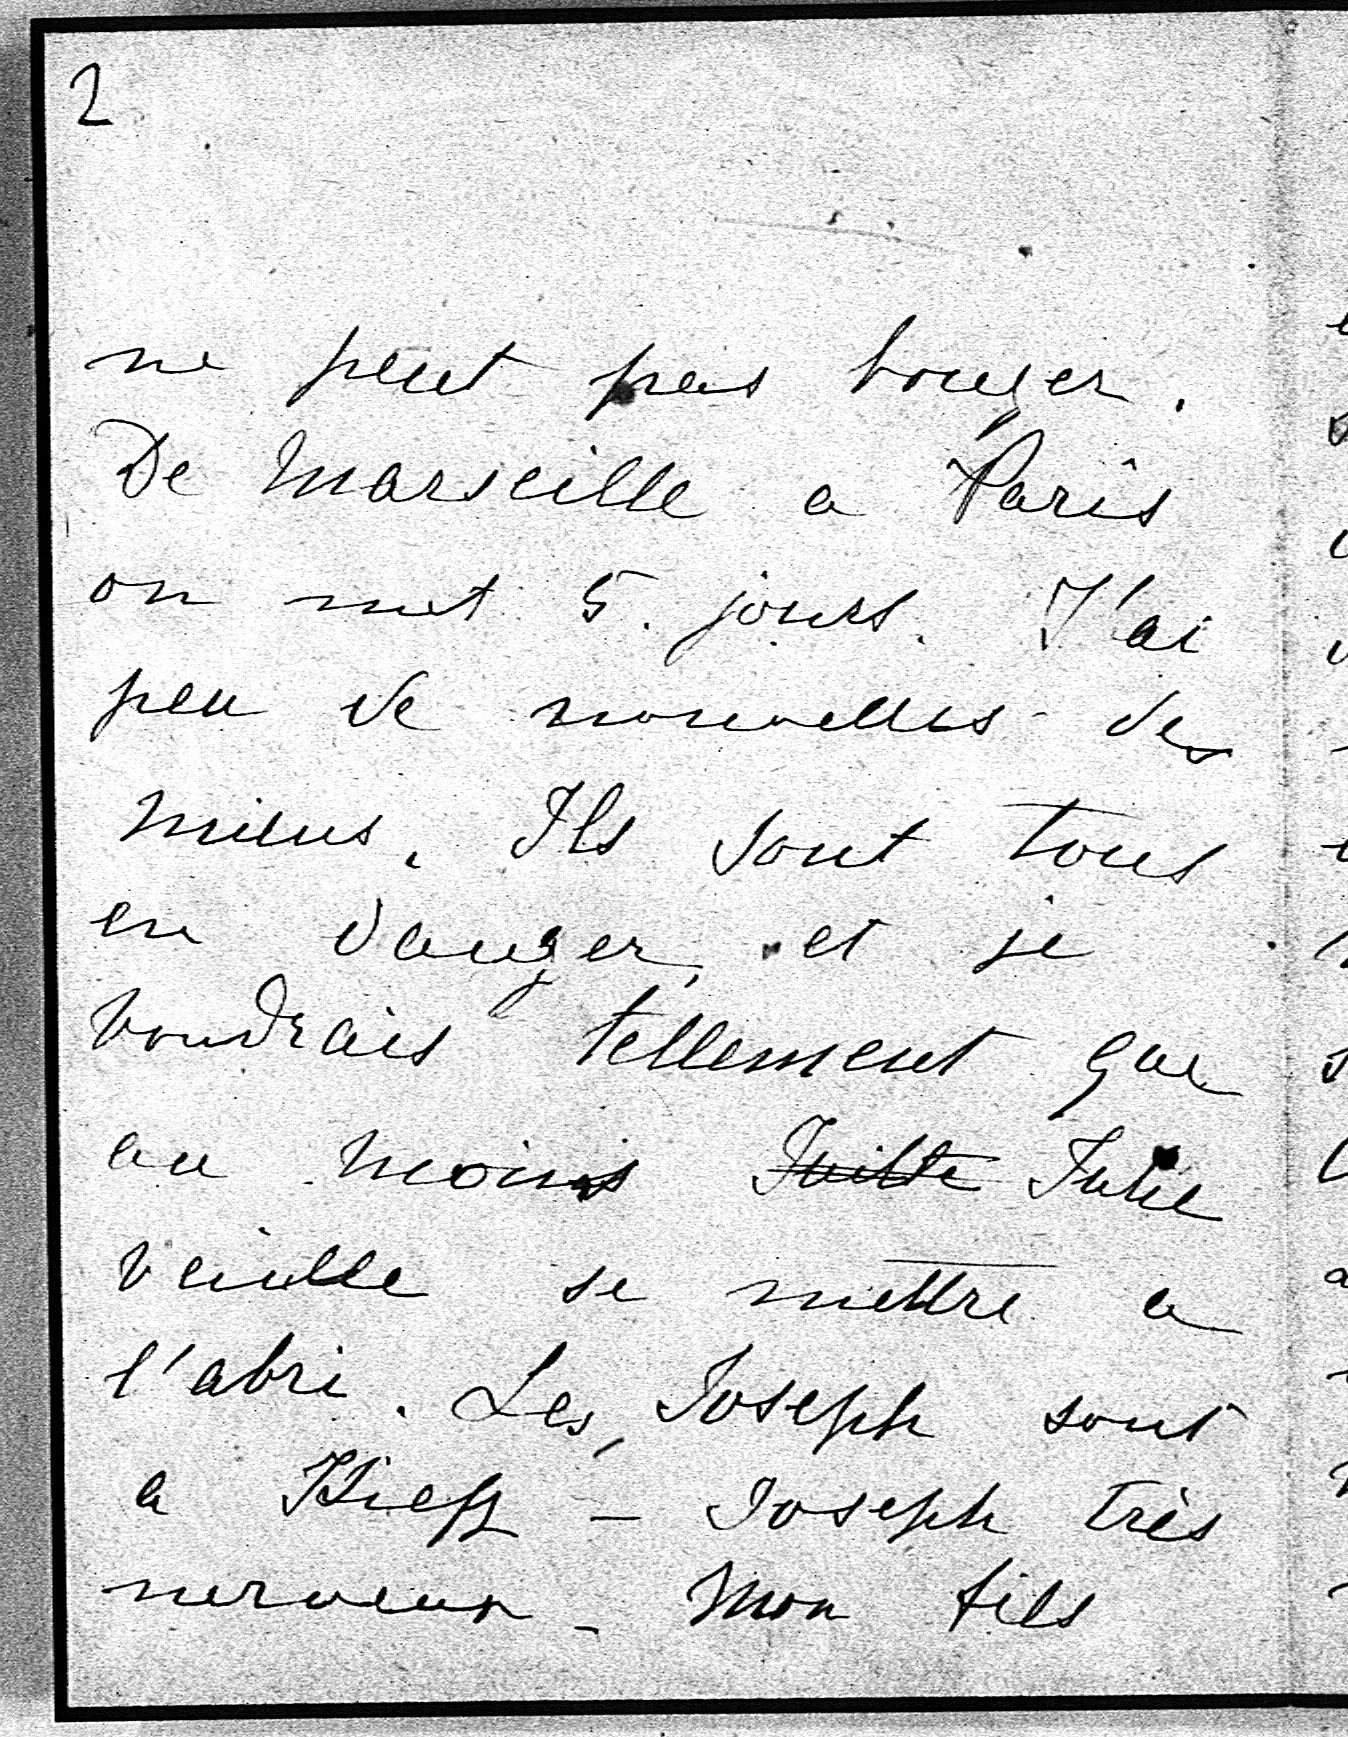 2
ne peut pas bouger.
De Marseille a Paris
on met 5. jours. J'ai
peu de nouvelles des
miens. Ils sont tous
en danger et je
voudrais tellement que
au moins Julie
veuille se mettre a
l'abri. Les Joseph sont
a Kieff – Joseph très
nerveux – Mon fils